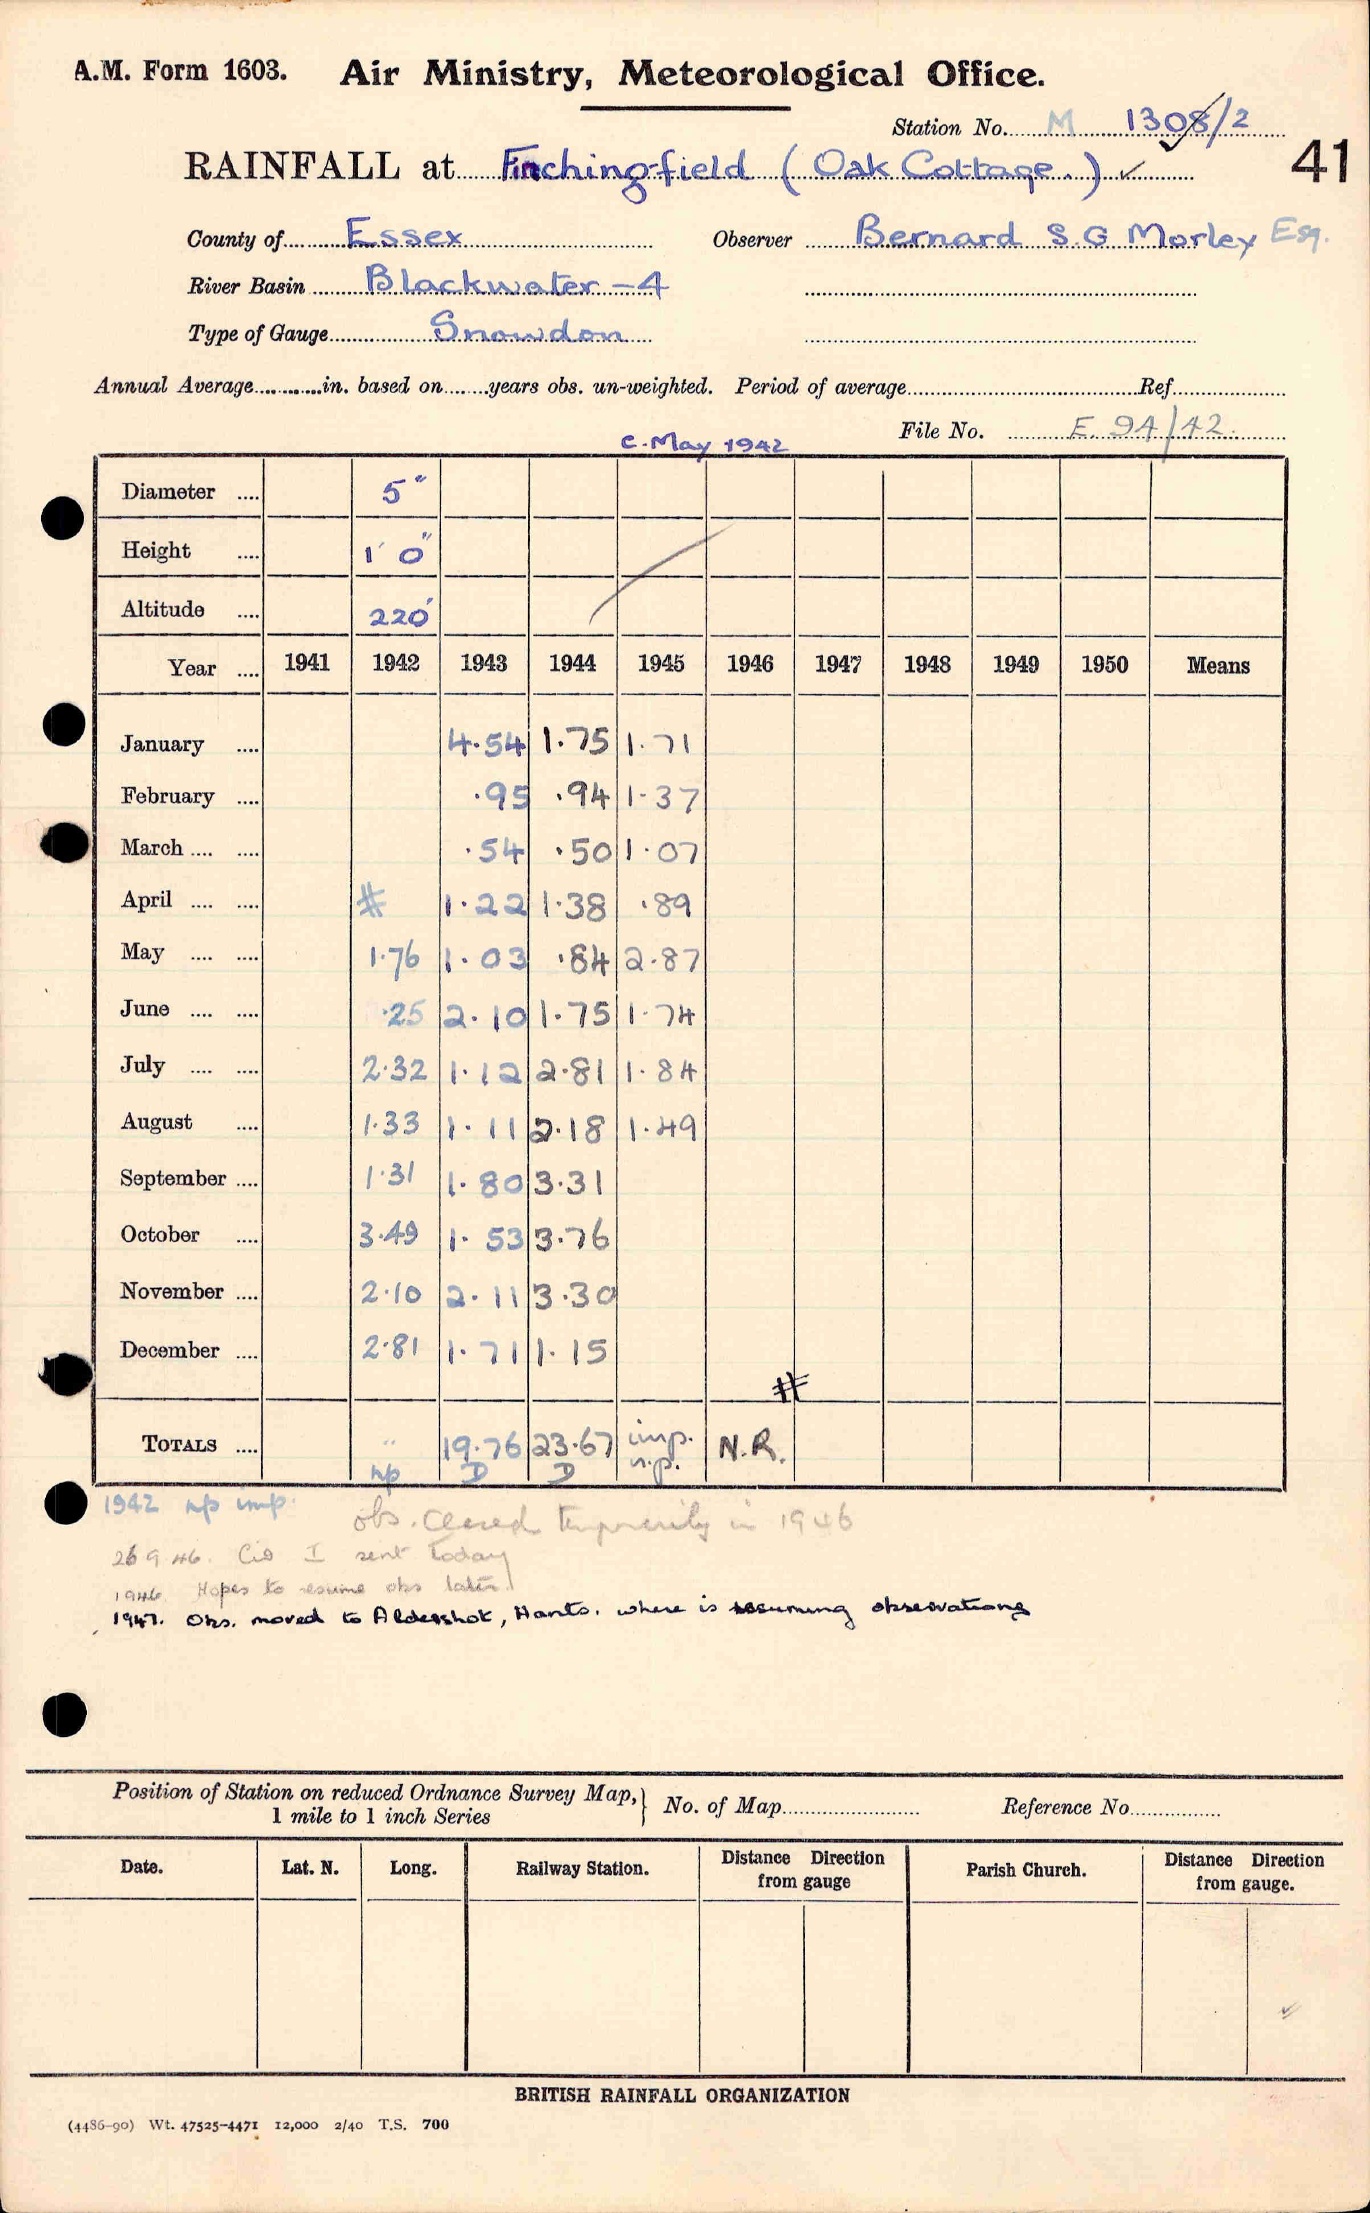 A.M. Form 1603. Air Ministry, Meteorological Office.
Station No. M 1308/2
RAINFALL at Finchingfield (Oak Cottage.) ✓
41
County of Essex Observer Bernard S.G Morley Esq.
River Basin Blackwater -4
Type of Gauge Snowdon
Annual Average in. based on years obs. un-weighted. Period of average Ref.
File No. E. 94/42.
c. May 1942
Diameter 5"
Height 1' 0"
Altitude 220'
Year 1941 1942 1943 1944 1945 1946 1947 1948 1949 1950 Means
January 4.54 1.75 1.71
February .95 .94 1.37
March .54 .50 1.07
April # 1.22 1.38 .89
May 1.76 1.03 .84 2.87
June .25 2.10 1.75 1.74
July 2.32 1.12 2.81 1.84
August 1.33 1.11 2.18 1.49
September 1.31 1.80 3.31
October 3.49 1.53 3.76
November 2.10 2.11 3.30
December 2.81 1.71 1.15
#
TOTALS 19.76 23.67 imp. N.R.
np D D n.p.
1942 np imp.
obs. ceased temporarily in 1946
26 9 46. I sent today
1946 Hopes to resume obs later
1947. Obs. moved to Aldershot, Hants. where is resuming observations
Position of Station on reduced Ordnance Survey Map, } No. of Map Reference No.
1 mile to 1 inch Series
Date. Lat. N. Long. Railway Station. Distance Direction from gauge Parish Church. Distance Direction from gauge.
BRITISH RAINFALL ORGANIZATION
(4486-90) Wt. 47525-4471 12,000 2/40 T.S. 700